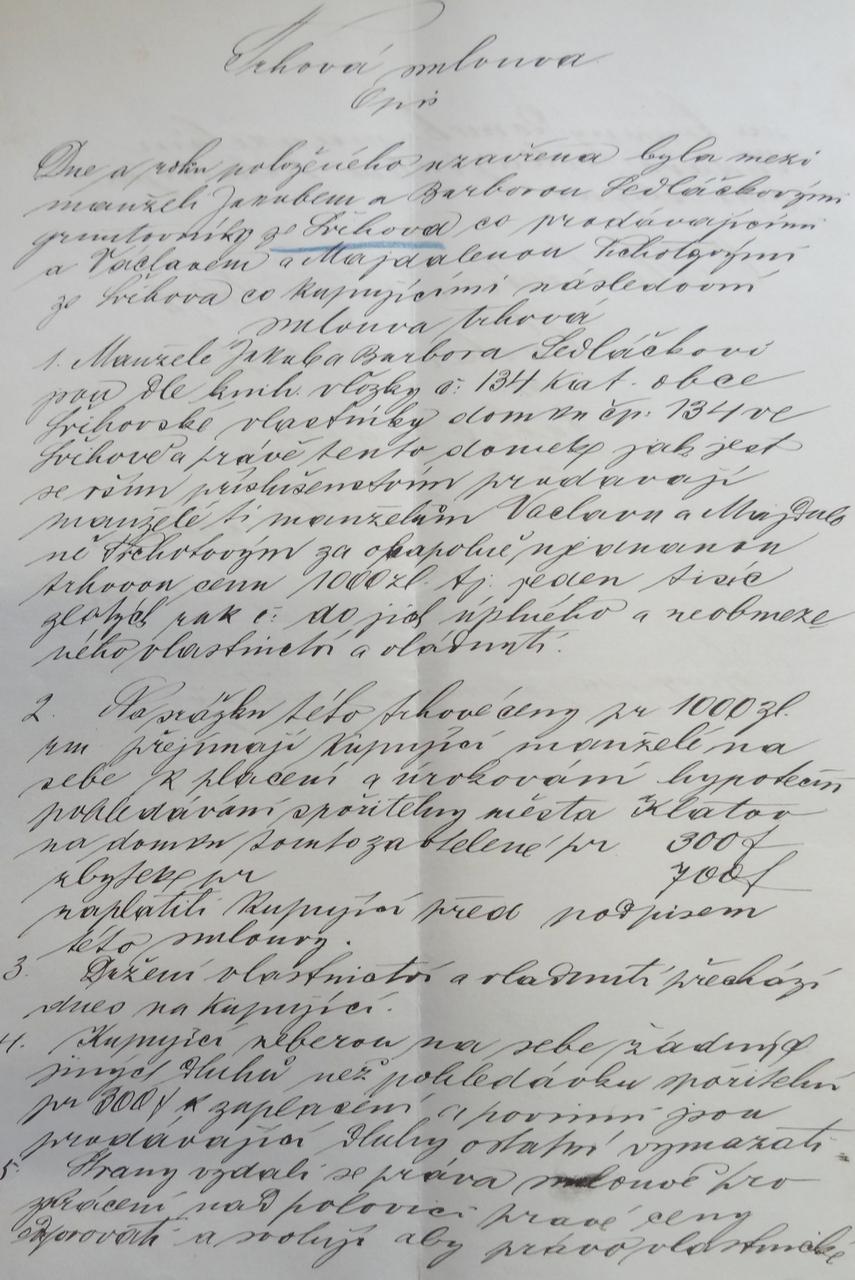 Trhová smlouva
Opis
Dne a roku položeného uzavřena byla mezi
manželi Jakubem a Barborou Sedláčkovými
gruntovníky ze Svrhova co prodávajícími
a Václavem a Majdalenou Tichotovými
ze Svihova co kupujícími následovní
smlouva trhová
1. Manželé Jakub a Barbora Sedláčkovi
jsou dle knih. vložky č: 134 kat. obce
Švihovské vlastníky domku čp: 134 ve
Švihově a právě tento domek jak jest
se vším příslušenstvím prodávají
manželé ti manželům Václavu a Majdale
ně Tichotovým za okapolně ujednanou
trhovou cenu 1000 zl. tj. jeden tisíc
zlatých rak č: do jich úplného a neobmeze
ného vlastnictví a vládnutí.
2. Na srážku této trhové ceny pr 1000 zl.
rm přejímají kupující manželé na
sebe k placení a úrokování hypoteční
pohledávání spořitelny města Klatov
na domku tomto zavtělené pr 300 f
zbytek pr 700 f
zaplatili kupující před podpisem
této smlouvy.
3. Držení vlastnictví a vládnutí přechází
dnes na kupující.
4. Kupující neberou na sebe žádných
jiných dluhů než pohledávku spořitelní
pr 300 f k zaplacení a povinni jsou
prodávající dluhy ostatní vymazati
5. Strany vzdali se práva smlouvě pro
zkrácení nad polovici pravé ceny
odporovati a svolují aby právo vlastnické